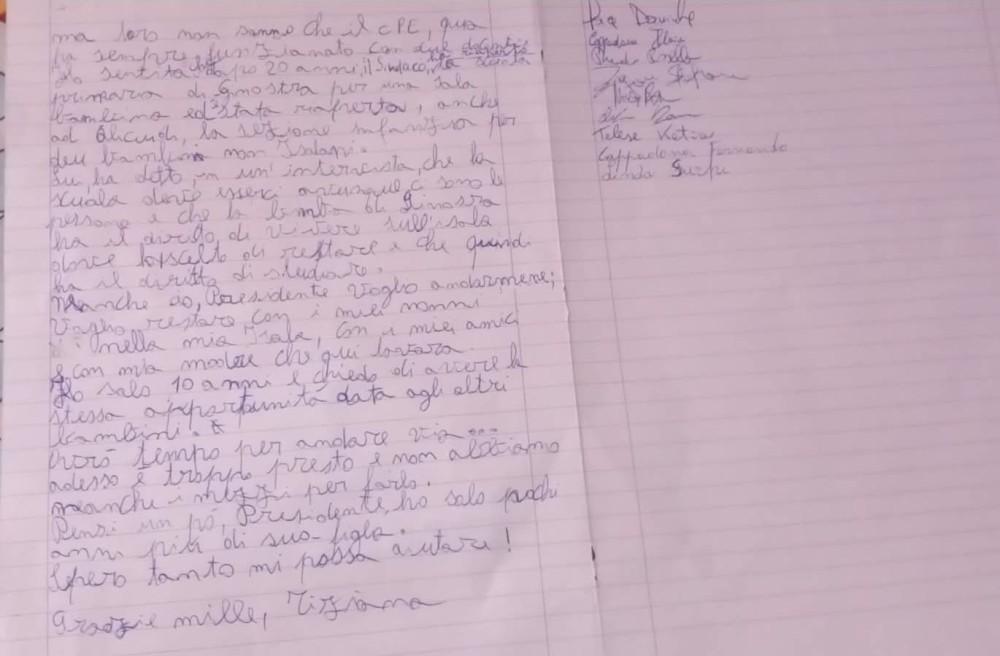 ma loro non sanno che il CPE, qua
ha sempre funzionato con due docenti,
Ho sentito dopo 20 anni, il Sindaco, la scuola
primaria di Ginostra per una sola
bambina ed è stata riaperta, anche
ad Alicudi, la sezione infanzia per
due bambini non Isolani.
Lui, ha detto, in un'intervista, che la
scuola deve esserci ovunque ci sono le
persone e che la bimba di Ginostra
ha il diritto di vivere sull'isola
dove ha scelto di restare e che quindi
ha il diritto di studiare.
Neanche io, Presidente voglio andarmene;
Voglio restare con i miei nonni
nella mia Isola, con i miei amici
e con mia madre che qui lavora.
Ho solo 10 anni e chiedo di avere la
stessa opportunità data agli altri
bambini.
Avrò tempo per andare via...
adesso è troppo presto e non abbiamo
neanche i mezzi per farlo.
Pensi un pó, Presidente, ho solo pochi
anni più di sua figlia.
Spero tanto mi possa aiutare!
Grazie mille, Tiziana
Telese Katia
Cappadona Fernando